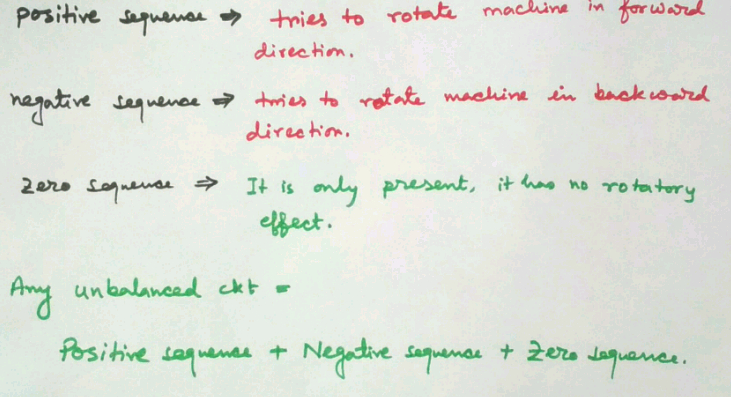 positive sequence ⇒ tries to rotate machine in forward
direction.
negative sequence ⇒ tries to rotate machine in backward
direction.
Zero sequence ⇒ It is only present, it has no rotatory
effect.
Any unbalanced ckt =
Positive sequence + Negative sequence + Zero sequence.